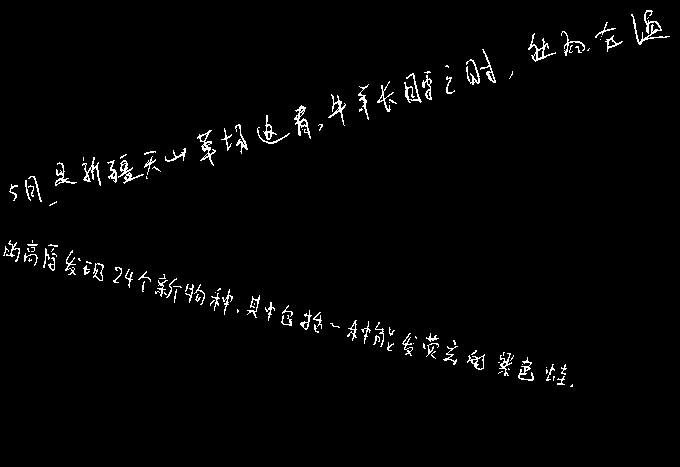 5月是新疆天山草场返青,牛羊长膘之时,然而在温
的高原发现24个新物种,其中包括一种能发荧光的紫色蛙.